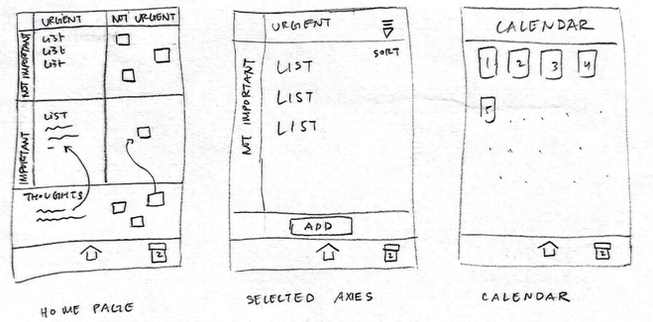 URGENT
NOT URGENT
NOT IMPORTANT
LIST
LIST
LIST
IMPORTANT
LIST
THOUGHTS
2
HOME PAGE
URGENT
SORT
NOT IMPORTANT
LIST
LIST
LIST
ADD
2
SELECTED AXIES
CALENDAR
1 2 3 4
5
2
CALENDAR